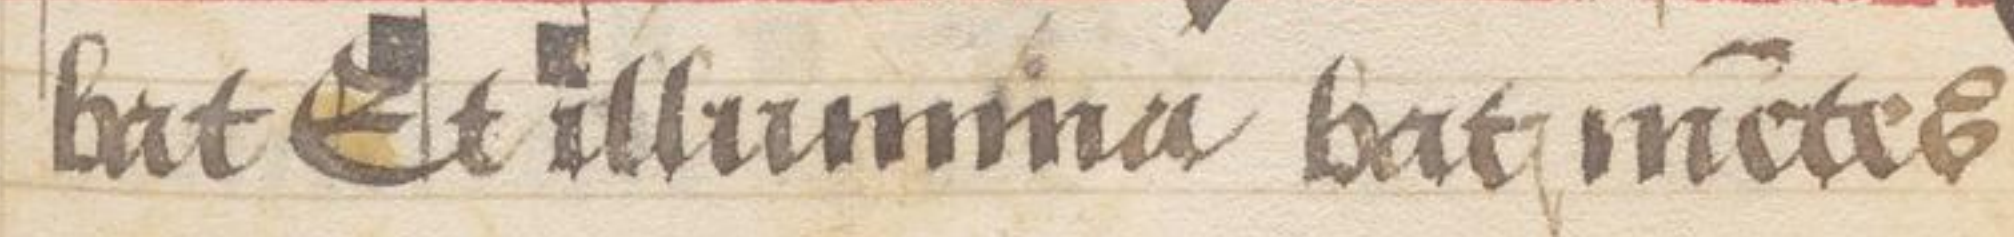 bat Et illumina bat mētes